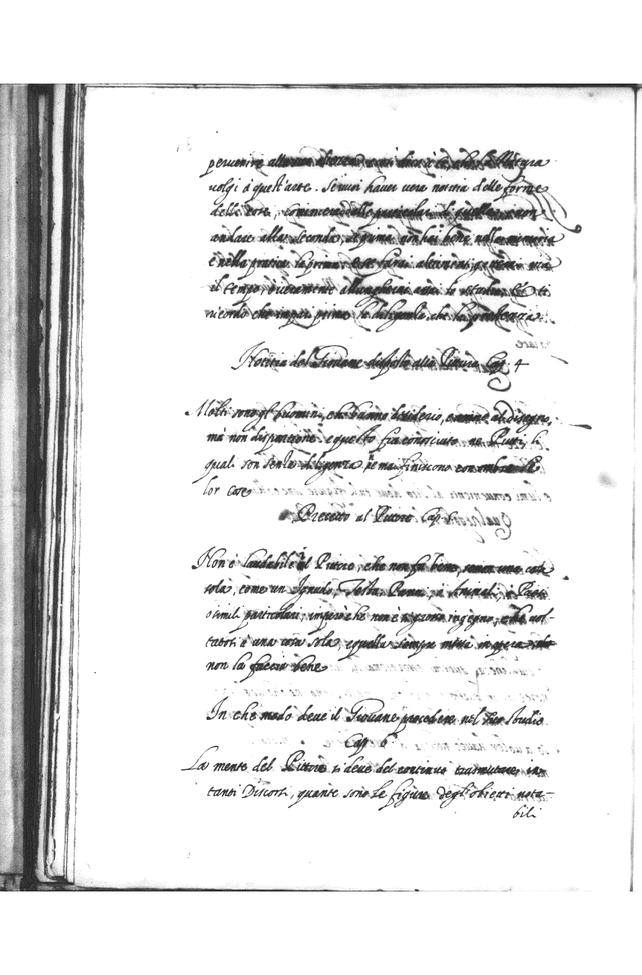 pervenire
volgi à quest'arte. Se vuoi haver vera notitia delle forme
delle cose, comincierai dalle particolar di quelle, e non
andare alla seconda, se prima non hai bene nella memoria
e nella pratica la prima
il tempo, e veramente allungherai assai lo studio. Et ti
ricordo che impari prima la diligenza, che la prestezza.
Notitia del Giovane disposto alla Pittura Cap. 4
Molti sono gl'huomini, che hanno desiderio, e amore al disegno,
mà non dispositione e questo fia conosciuto ne Putti, li
quali son senza diligenza ne mai finiscono con ombre le
lor cose
Precetto al Pittore Cap.
Non è laudabile il Pittore, che non fa bene, se non una cosa
sola, come un Ignudo, Testa, Panni, ò Animali, ò Paesi
ò simili particolari, imperò che non è si grosso ingegno, che vol-
tatosi à una cosa sola, e quella sempre messa in opera
non la faccia bene
In che modo deve il Giovane procedere nel suo studio
Cap. 6
La mente del Pittore si deve del continuo trasmutare in
tanti Discorsi, quante sono le figure degl'obietti nota-
bili